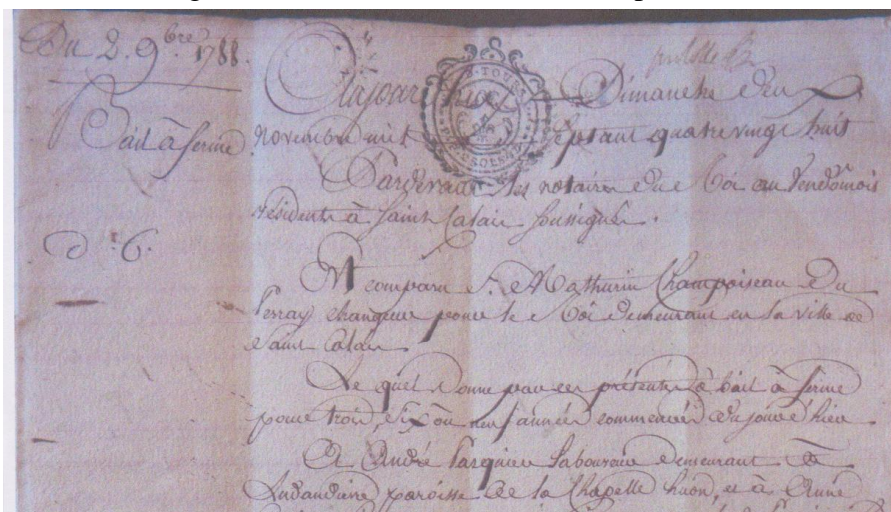 Du 2. 9bre 1788.
Bail à ferme
d : 6.
Aujourd'hui Dimanche deux
novembre mil sept cent quatre vingt huit
Pardevant les notaires du Roi au Vendômois
résidents à Saint Calais soussignés.
Est comparu Sr. Mathurin Champoiseau Du
Perray changeur pour le Roi demeurant en la ville de
Saint Calais
Le quel donne par ces présentes à bail à ferme
pour trois, six ou neuf années commencées du jour d'hier
A André Pasquier laboureur demeurant à
paroisse de la Chapelle huon, et à Anne